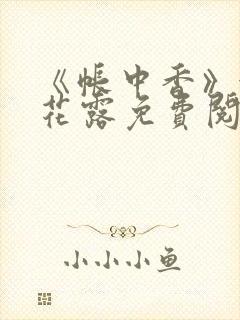 《帐中香》
花露免費閱
小小小鱼